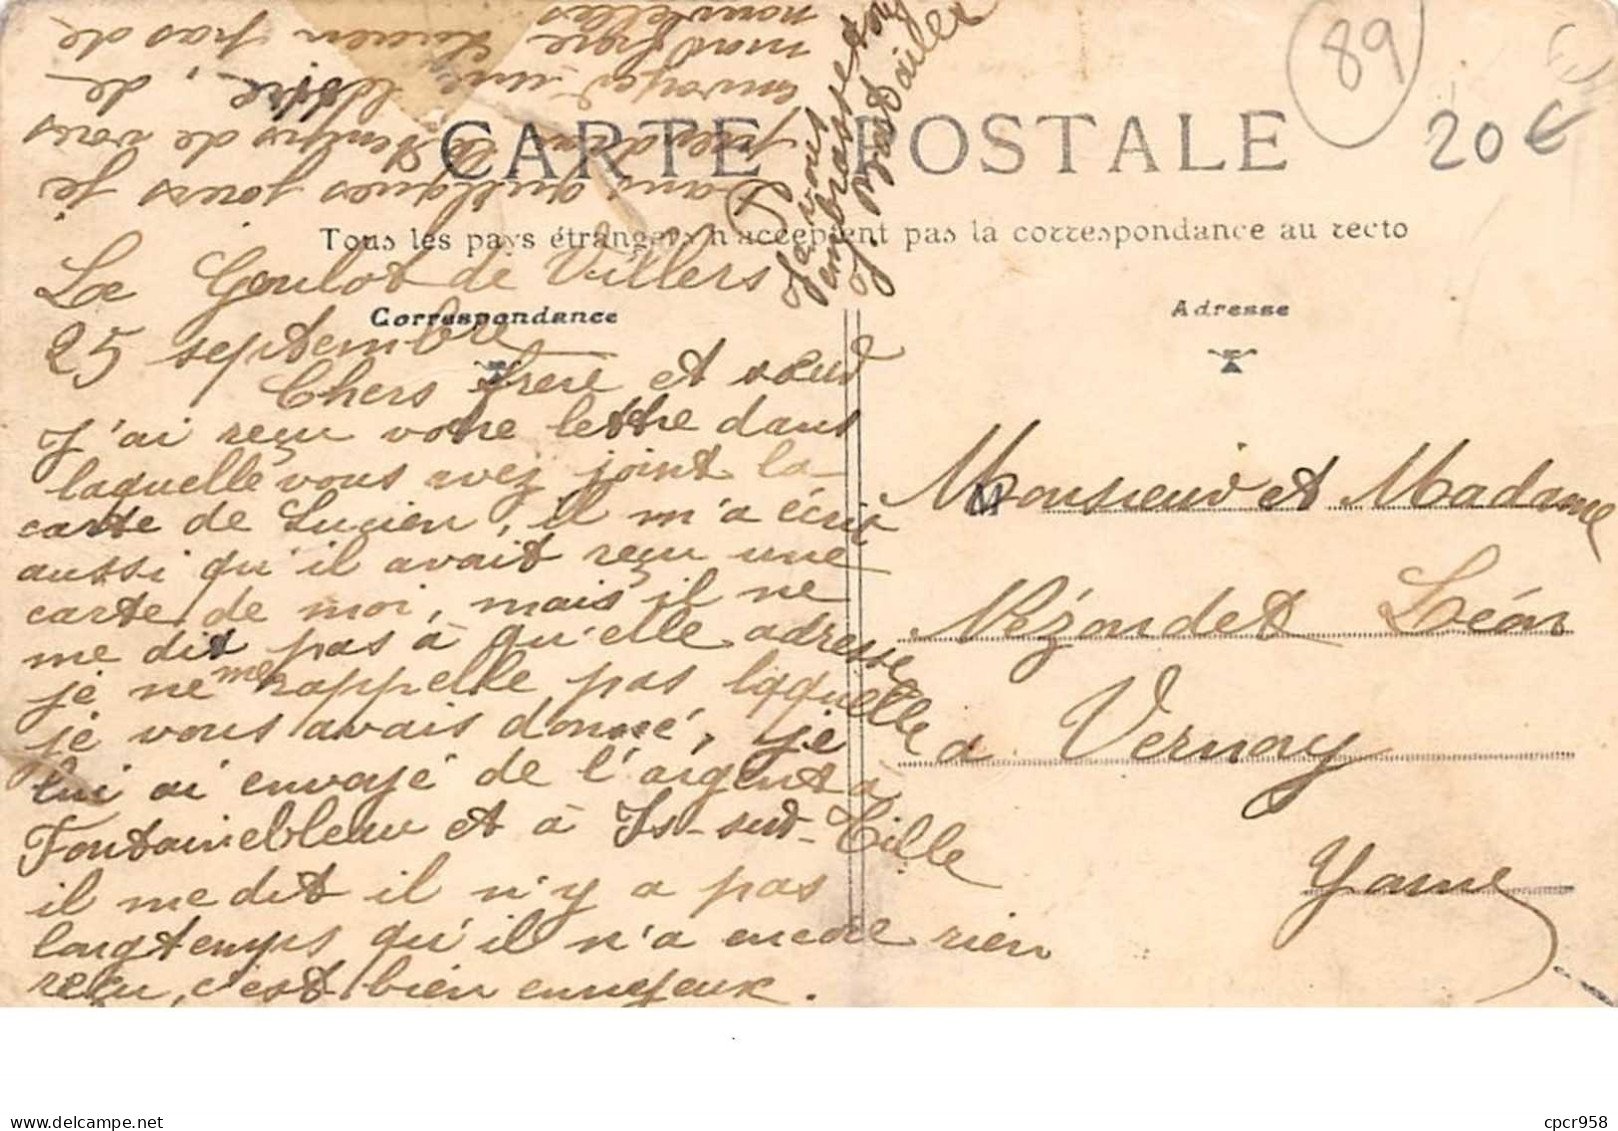 89
20 €
CARTE POSTALE
Tous les pays étrangers n'acceptent pas la correspondance au recto
Correspondance
Adresse
Le Goulot de Villers
25 septembre
Chers frère et sœur
J'ai reçu votre lettre dans
laquelle vous avez joint la
carte de Lucien, il m'a écrit
aussi qu'il avait reçu une
carte de moi, mais il ne
me dit pas à qu'elle adresse
je ne me rappelle pas laquelle
je vous avais donné, je
lui ai envoyé de l'argent a
Fontainebleau et à Is-sur-Tille
il me dit il n'y a pas
longtemps qu'il n'a encore rien
reçu, c'est bien ennuyeux.
Dans quelques jours je
prendrai le temps de vous
envoyer une lettre, de
mon frère Lucien pas de
nouvelles
Je vous
embrasse
Monsieur et Madame
Rézondet Léon
a Vernoy
Yonne
cpcr958